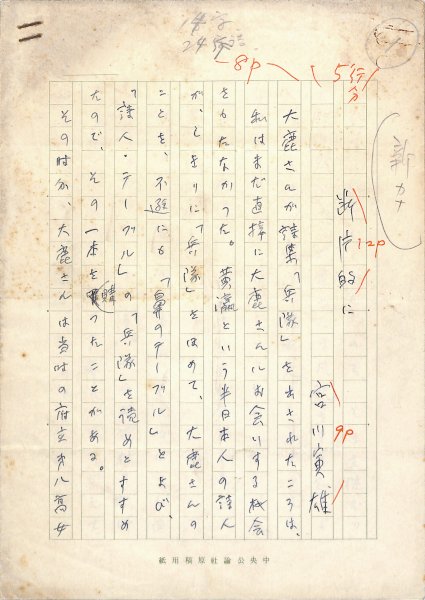 14字
24字詰
8p
5行分
新カナ
断片的に
12p
宮川寅雄
9p
大鹿さんが詩集「兵隊」を出されたころは、
私はまだ直接に大鹿さんにお会いする機会
をもたなかった。黄瀛という半日本人の詩人
が、しきりに「兵隊」をほめて、大鹿さんの
ことを、不遜にも「鼻のテーブル」とよび、
「詩人・テーブル」の「兵隊」を読めとすすめ
たので、その一本を購ったことがある。
その時分、大鹿さんは当時の府立第八高女
中央公論社原稿用紙